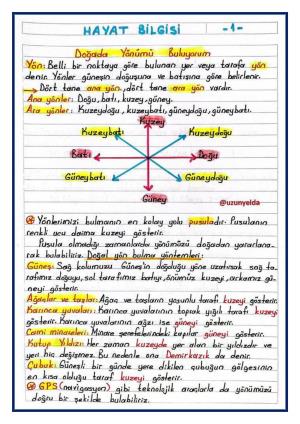 HAYAT BİLGİSİ -1-
Doğada Yönümü Buluyorum
Yön: Belli bir noktaya göre bulunan yer veya tarafa yön
denir. Yönler güneşin doğuşuna ve batışına göre belirlenir.
→ Dört tane ana yön, dört tane ara yön vardır.
Ana yönler: Doğu, batı, kuzey, güney.
Ara yönler: Kuzeydoğu, kuzeybatı, güneydoğu, güneybatı.
Kuzey
Kuzeybatı Kuzeydoğu
Batı Doğu
Güneybatı Güneydoğu
Güney
@uzunyelda
Yönlerimizi bulmanın en kolay yolu pusuladır. Pusulanın
renkli ucu daima kuzeyi gösterir.
Pusula olmadığı zamanlarda yönümüzü doğadan yararlana-
rak bulabiliriz. Doğal yön bulma yöntemleri:
Güneş: Sağ kolumuzu Güneş'in doğduğu yöne uzatırsak sağ ta-
rafımız doğuyu, sol tarafımız batıyı, önümüz kuzeyi, arkamız gü-
neyi gösterir.
Ağaçlar ve taşlar: Ağaç ve taşların yosunlu tarafı kuzeyi gösterir.
Karınca yuvaları: Karınca yuvalarının toprak yığılı tarafı kuzeyi
gösterir. Karınca yuvalarının ağzı ise güneyi gösterir.
Cami minareleri: Minare şerefelerindeki kapılar güneyi gösterir.
Kutup Yıldızı: Her zaman kuzeyde yer alan bir yıldızdır ve
yeri hiç değişmez. Bu nedenle ona Demirkazık da denir.
Çubuk: Güneşli bir günde yere dikilen çubuğun gölgesinin
en kısa olduğu taraf kuzeyi gösterir.
GPS (navigasyon) gibi teknolojik araçlarla da yönümüzü
doğru bir şekilde bulabiliriz.